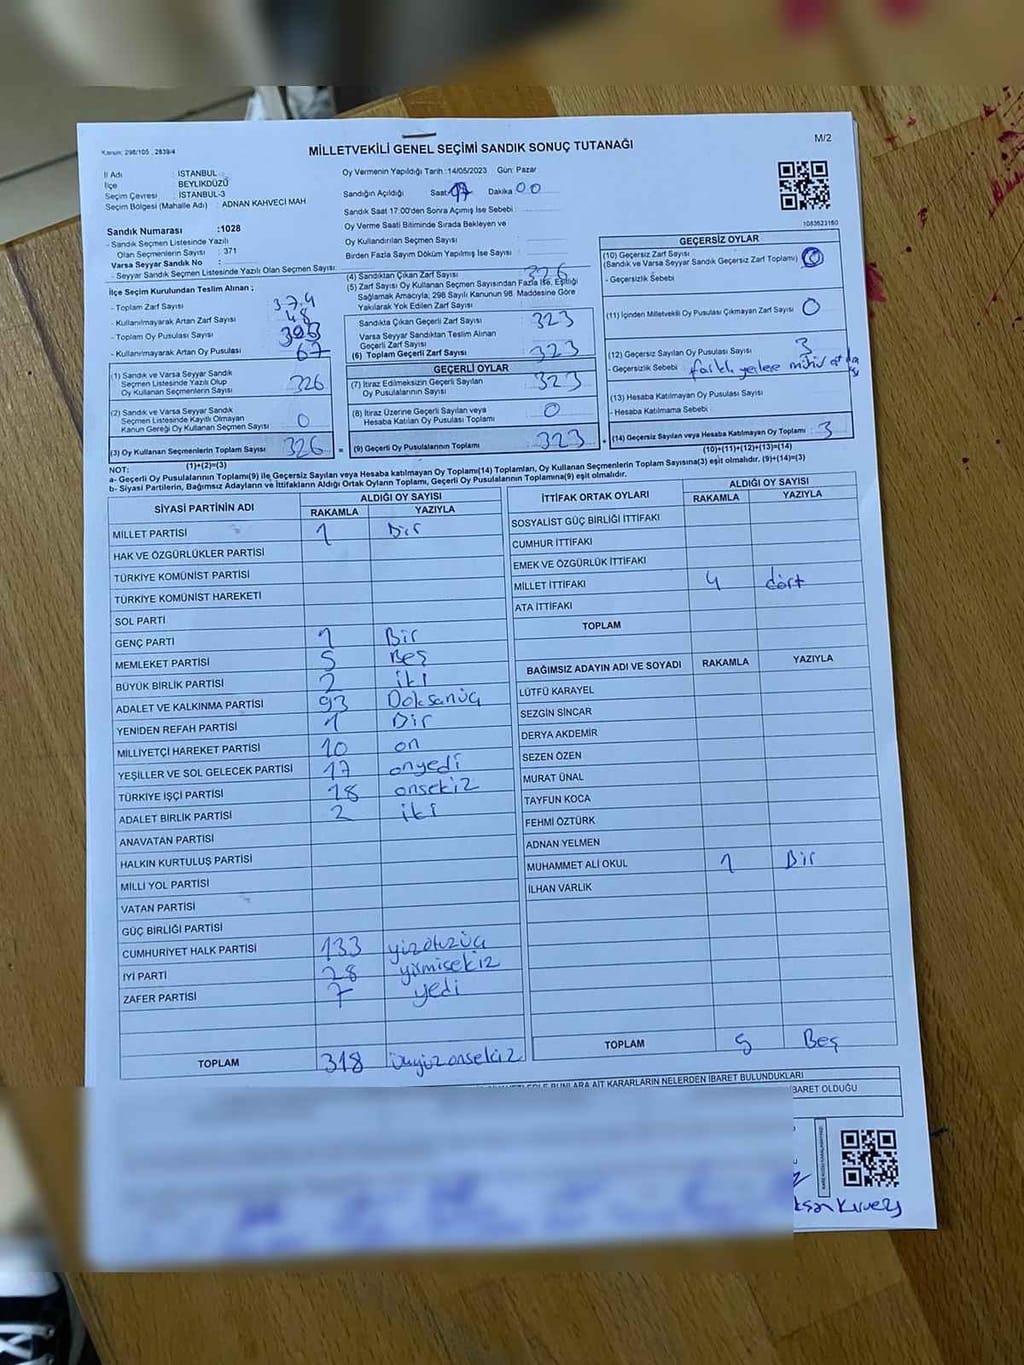 Kanun: 298/105 , 2839/4
MİLLETVEKİLİ GENEL SEÇİMİ SANDIK SONUÇ TUTANAĞI
M/2
İl Adı : İSTANBUL
İlçe BEYLİKDÜZÜ
Seçim Çevresi : İSTANBUL-3
Seçim Bölgesi (Mahalle Adı) : ADNAN KAHVECİ MAH
Sandık Numarası :1028
- Sandık Seçmen Listesinde Yazılı
Olan Seçmenlerin Sayısı : 371
Varsa Seyyar Sandık No :
- Seyyar Sandık Seçmen Listesinde Yazılı Olan Seçmen Sayısı:
Oy Vermenin Yapıldığı Tarih : 14/05/2023 Gün: Pazar
Sandığın Açıldığı Saat 17 Dakika 00
Sandık Saat 17:00'den Sonra Açımış İse Sebebi :
Oy Verme Saati Bitiminde Sırada Bekleyen ve
Oy Kullandırılan Seçmen Sayısı
Birden Fazla Sayım Döküm Yapılmış İse Sayısı :
1083623160
İlçe Seçim Kurulundan Teslim Alınan ;
- Toplam Zarf Sayısı 374
- Kullanılmayarak Artan Zarf Sayısı 48
- Toplam Oy Pusulası Sayısı 393
- Kullanılmayarak Artan Oy Pusulası 67
(1) Sandık ve Varsa Seyyar Sandık
Seçmen Listesinde Yazılı Olup
Oy Kullanan Seçmenlerin Sayısı 326
(2) Sandık ve Varsa Seyyar Sandık
Seçmen Listesinde Kayıtlı Olmayan
Kanun Gereği Oy Kullanan Seçmen Sayısı 0
(3) Oy Kullanan Seçmenlerin Toplam Sayısı 326 =
(1)+(2)=(3)
(4) Sandıktan Çıkan Zarf Sayısı 326
(5) Zarf Sayısı Oy Kullanan Seçmen Sayısından Fazla İse, Eşitliği
Sağlamak Amacıyla, 298 Sayılı Kanunun 98. Maddesine Göre
Yakılarak Yok Edilen Zarf Sayısı
Sandıkta Çıkan Geçerli Zarf Sayısı 323
Varsa Seyyar Sandıktan Teslim Alınan
Geçerli Zarf Sayısı
(6) Toplam Geçerli Zarf Sayısı 323
GEÇERLİ OYLAR
(7) İtiraz Edilmeksizin Geçerli Sayılan
Oy Pusulalarının Sayısı 323
(8) İtiraz Üzerine Geçerli Sayılan veya
Hesaba Katılan Oy Pusulaları Toplamı 0
(9) Geçerli Oy Pusulalarının Toplamı 323 +
GEÇERSİZ OYLAR
(10) Geçersiz Zarf Sayısı
(Sandık ve Varsa Seyyar Sandık Geçersiz Zarf Toplamı)
- Geçersizlik Sebebi
(11) İçinden Milletvekili Oy Pusulası Çıkmayan Zarf Sayısı 0
(12) Geçersiz Sayılan Oy Pusulası Sayısı 3
- Geçersizlik Sebebi farklı yerlere mühür
(13) Hesaba Katılmayan Oy Pusulası Sayısı
- Hesaba Katılmama Sebebi
(14) Geçersiz Sayılan veya Hesaba Katılmayan Oy Toplamı 3
(10)+(11)+(12)+(13)=(14)
NOT:
a- Geçerli Oy Pusulalarının Toplamı(9) ile Geçersiz Sayılan veya Hesaba katılmayan Oy Toplamı(14) Toplamları, Oy Kullanan Seçmenlerin Toplam Sayısına(3) eşit olmalıdır. (9)+(14)=(3)
b- Siyasi Partilerin, Bağımsız Adayların ve İttifakların Aldığı Ortak Oyların Toplamı, Geçerli Oy Pusulalarının Toplamına(9) eşit olmalıdır.
SİYASİ PARTİNİN ADI ALDIĞI OY SAYISI
RAKAMLA YAZIYLA
MİLLET PARTİSİ 1 Bir
HAK VE ÖZGÜRLÜKLER PARTİSİ
TÜRKİYE KOMÜNİST PARTİSİ
TÜRKİYE KOMÜNİST HAREKETİ
SOL PARTİ
GENÇ PARTİ 1 Bir
MEMLEKET PARTİSİ 5 Beş
BÜYÜK BİRLİK PARTİSİ 2 iki
ADALET VE KALKINMA PARTİSİ 93 Doksanüç
YENİDEN REFAH PARTİSİ 1 Bir
MİLLİYETÇİ HAREKET PARTİSİ 10 on
YEŞİLLER VE SOL GELECEK PARTİSİ 17 onyedi
TÜRKİYE İŞÇİ PARTİSİ 18 onsekiz
ADALET BİRLİK PARTİSİ 2 iki
ANAVATAN PARTİSİ
HALKIN KURTULUŞ PARTİSİ
MİLLİ YOL PARTİSİ
VATAN PARTİSİ
GÜÇ BİRLİĞİ PARTİSİ
CUMHURİYET HALK PARTİSİ 133 yüzotuzüç
İYİ PARTİ 28 yirmisekiz
ZAFER PARTİSİ 7 yedi
TOPLAM 318 üçyüzonsekiz
İTTİFAK ORTAK OYLARI ALDIĞI OY SAYISI
RAKAMLA YAZIYLA
SOSYALİST GÜÇ BİRLİĞİ İTTİFAKI
CUMHUR İTTİFAKI
EMEK VE ÖZGÜRLÜK İTTİFAKI
MİLLET İTTİFAKI 4 dört
ATA İTTİFAKI
TOPLAM
BAĞIMSIZ ADAYIN ADI VE SOYADI RAKAMLA YAZIYLA
LÜTFÜ KARAYEL
SEZGİN SİNCAR
DERYA AKDEMİR
SEZEN ÖZEN
MURAT ÜNAL
TAYFUN KOCA
FEHMİ ÖZTÜRK
ADNAN YELMEN
MUHAMMET ALİ OKUL 1 Bir
İLHAN VARLIK
TOPLAM 5 Beş
BUNLARA AİT KARARLARIN NELERDEN İBARET BULUNDUKLARI
İBARET OLDUĞU